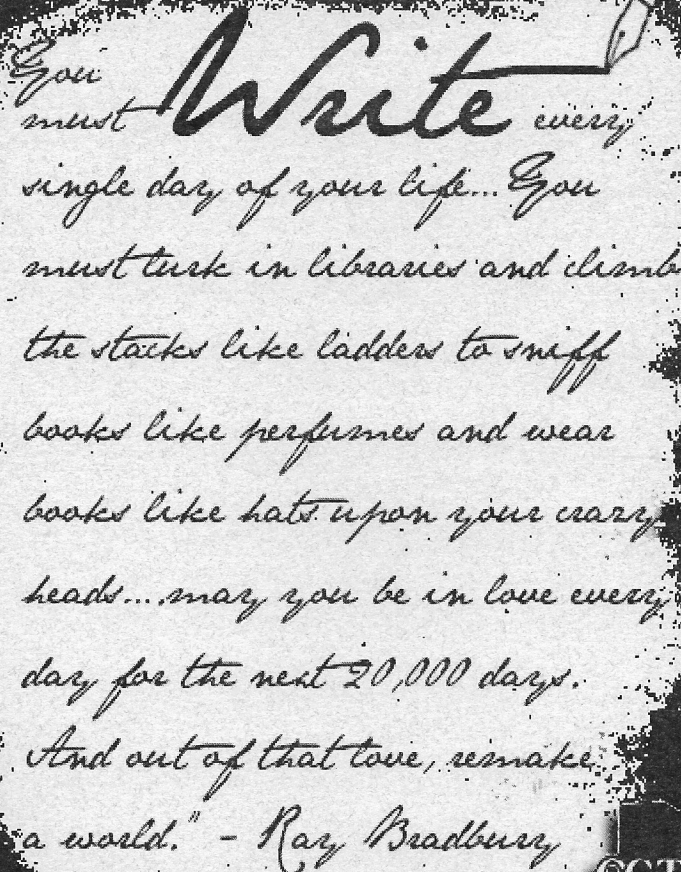 You
must Write every
single day of your life... You
must lurk in libraries and climb
the stacks like ladders to sniff
books like perfumes and wear
books like hats upon your crazy
heads....may you be in love every
day for the next 20,000 days.
And out of that love, remake
a world." - Ray Bradbury